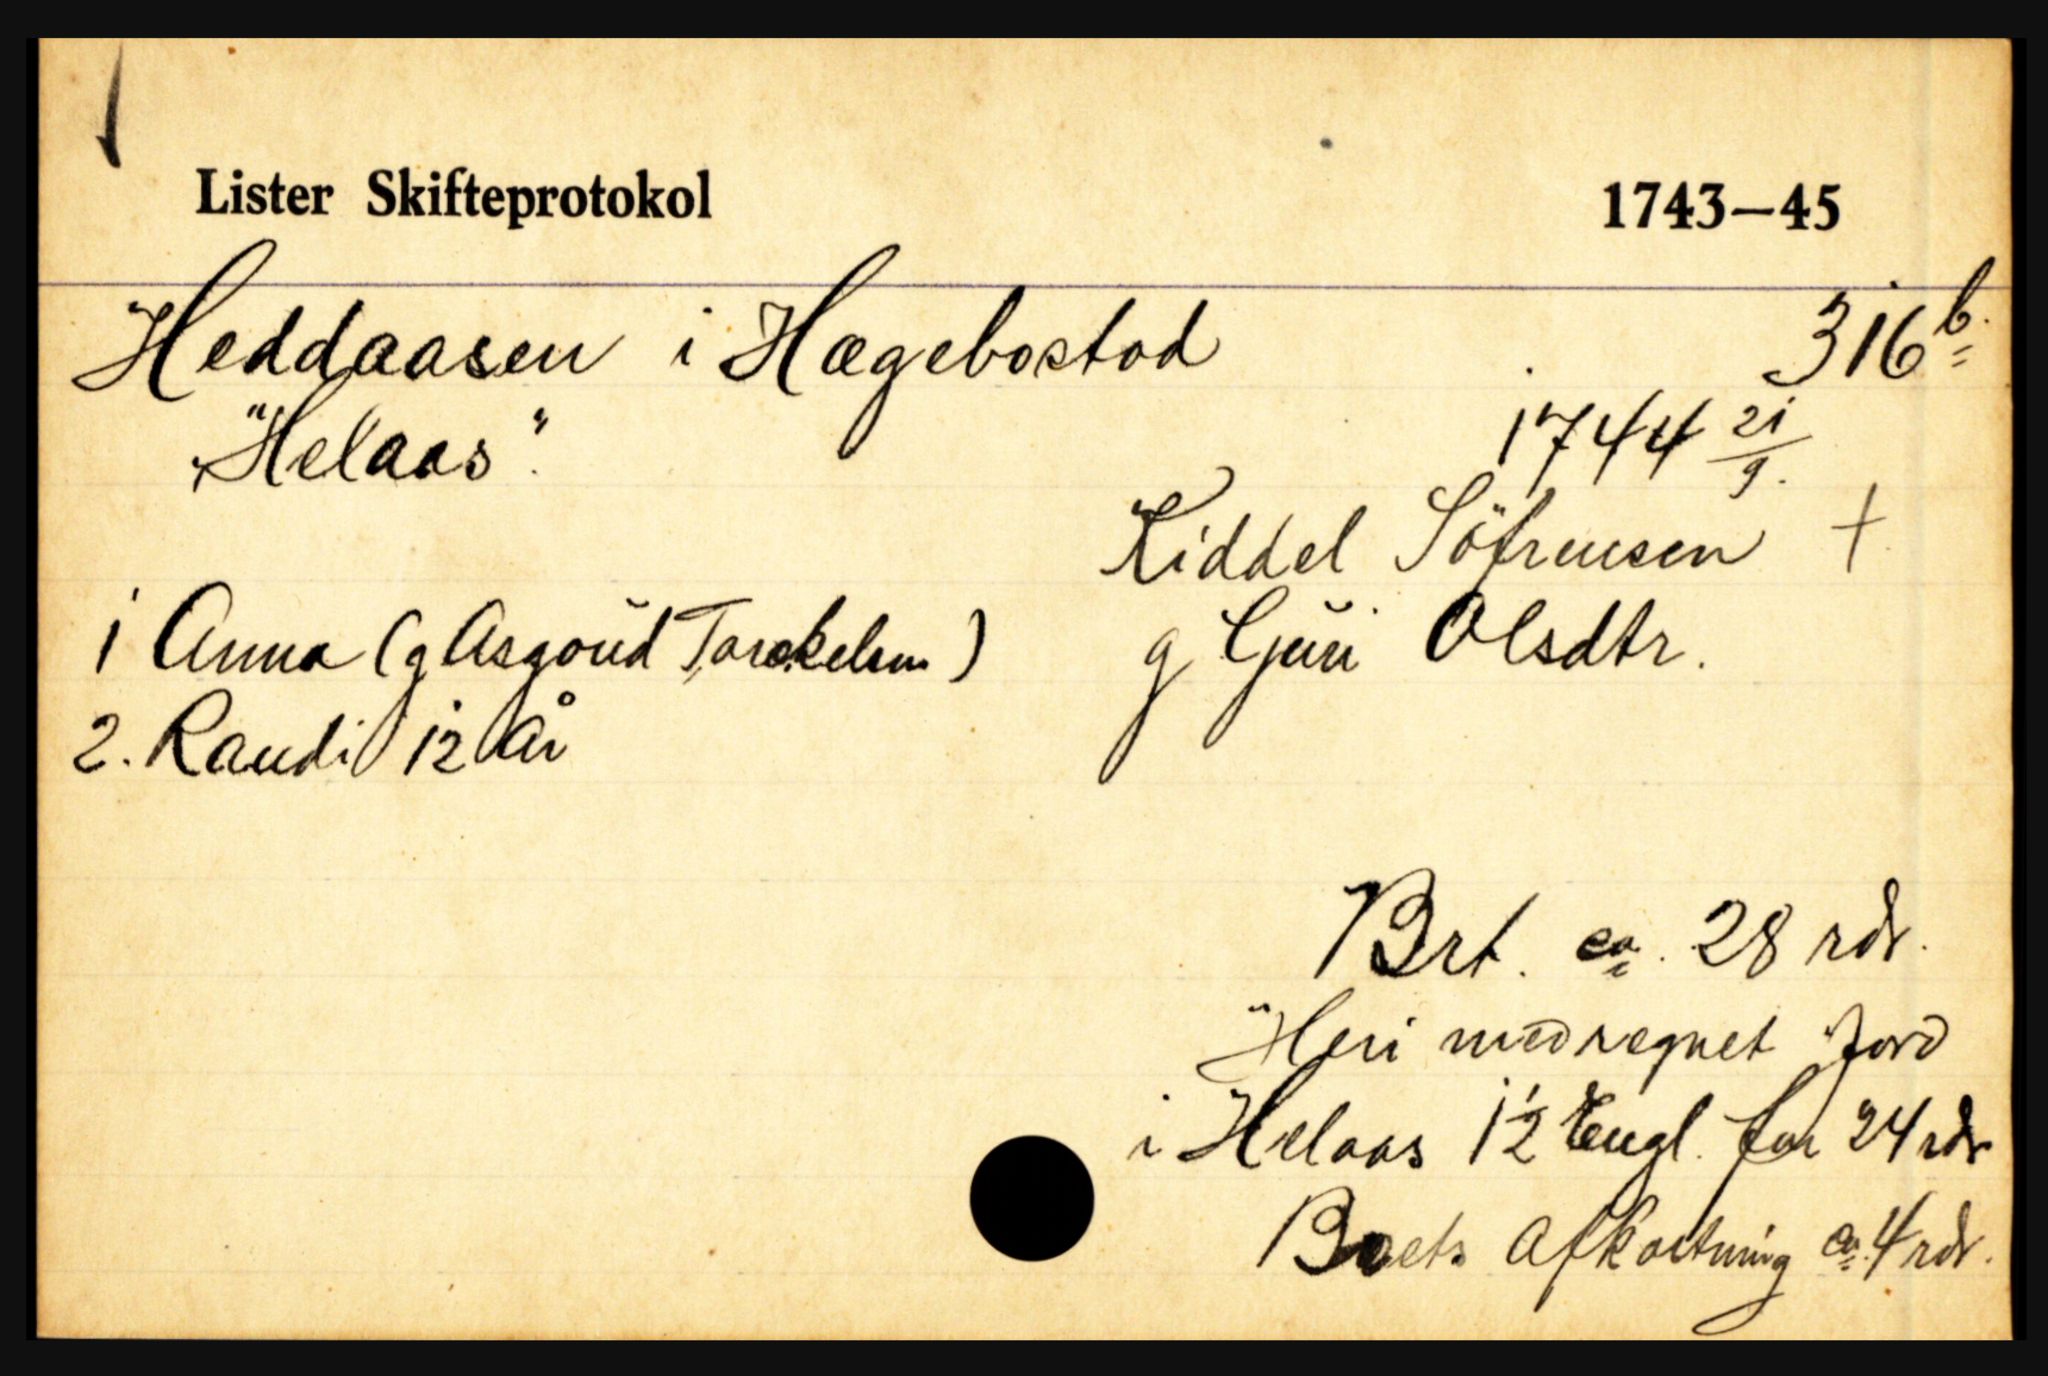 Lister Skifteprotokol 1743—45
Heddaasen i Hægebostad 316 b.
"Helaas". 1744 21/9.
Kiddel Söfrensen +
1 Anna (g Asgoŭd Torkelsen) g Gŭri Olsdtr.
2. Randi 12 År
Brt. ca. 28 rdr.
"Heri medregnet Jord
i Helaas 1 1/2 Engl. for 24 rdr
Boets Afkortning ca. 4 rdr.